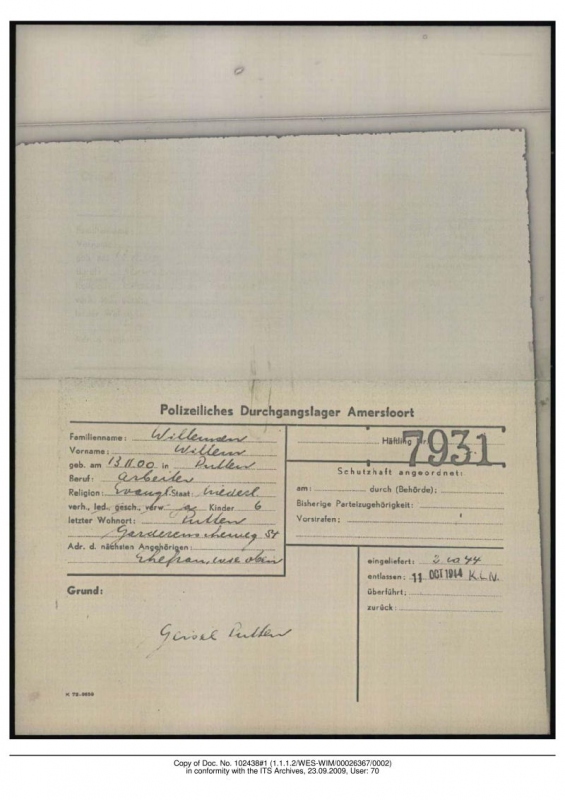 Polizeiliches Durchgangslager Amersfoort
Familienname: Willemsen
Vorname: Willem
geb. am 13.11.00 in Putten
Beruf: Arbeiter
Religion: Evangl. Staat: Niederl.
verh., led., gesch., verw. Kinder 6
letzter Wohnort: Putten
Garderenscheweg
Adr. d. nächsten Angehörigen:
Ehefrau, wie oben
Grund:
Geisel Putten
K 72-6669
Häftling Nr. 7931
Schutzhaft angeordnet:
am: durch (Behörde):
Bisherige Parteizugehörigkeit:
Vorstrafen:
eingeliefert: 44
entlassen: 11 OCT 1944 K.L.N.
überführt:
zurück:
Copy of Doc. No. 102438#1 (1.1.1.2/WES-WIM/00026367/0002)
in conformity with the ITS Archives, 23.09.2009, User: 70